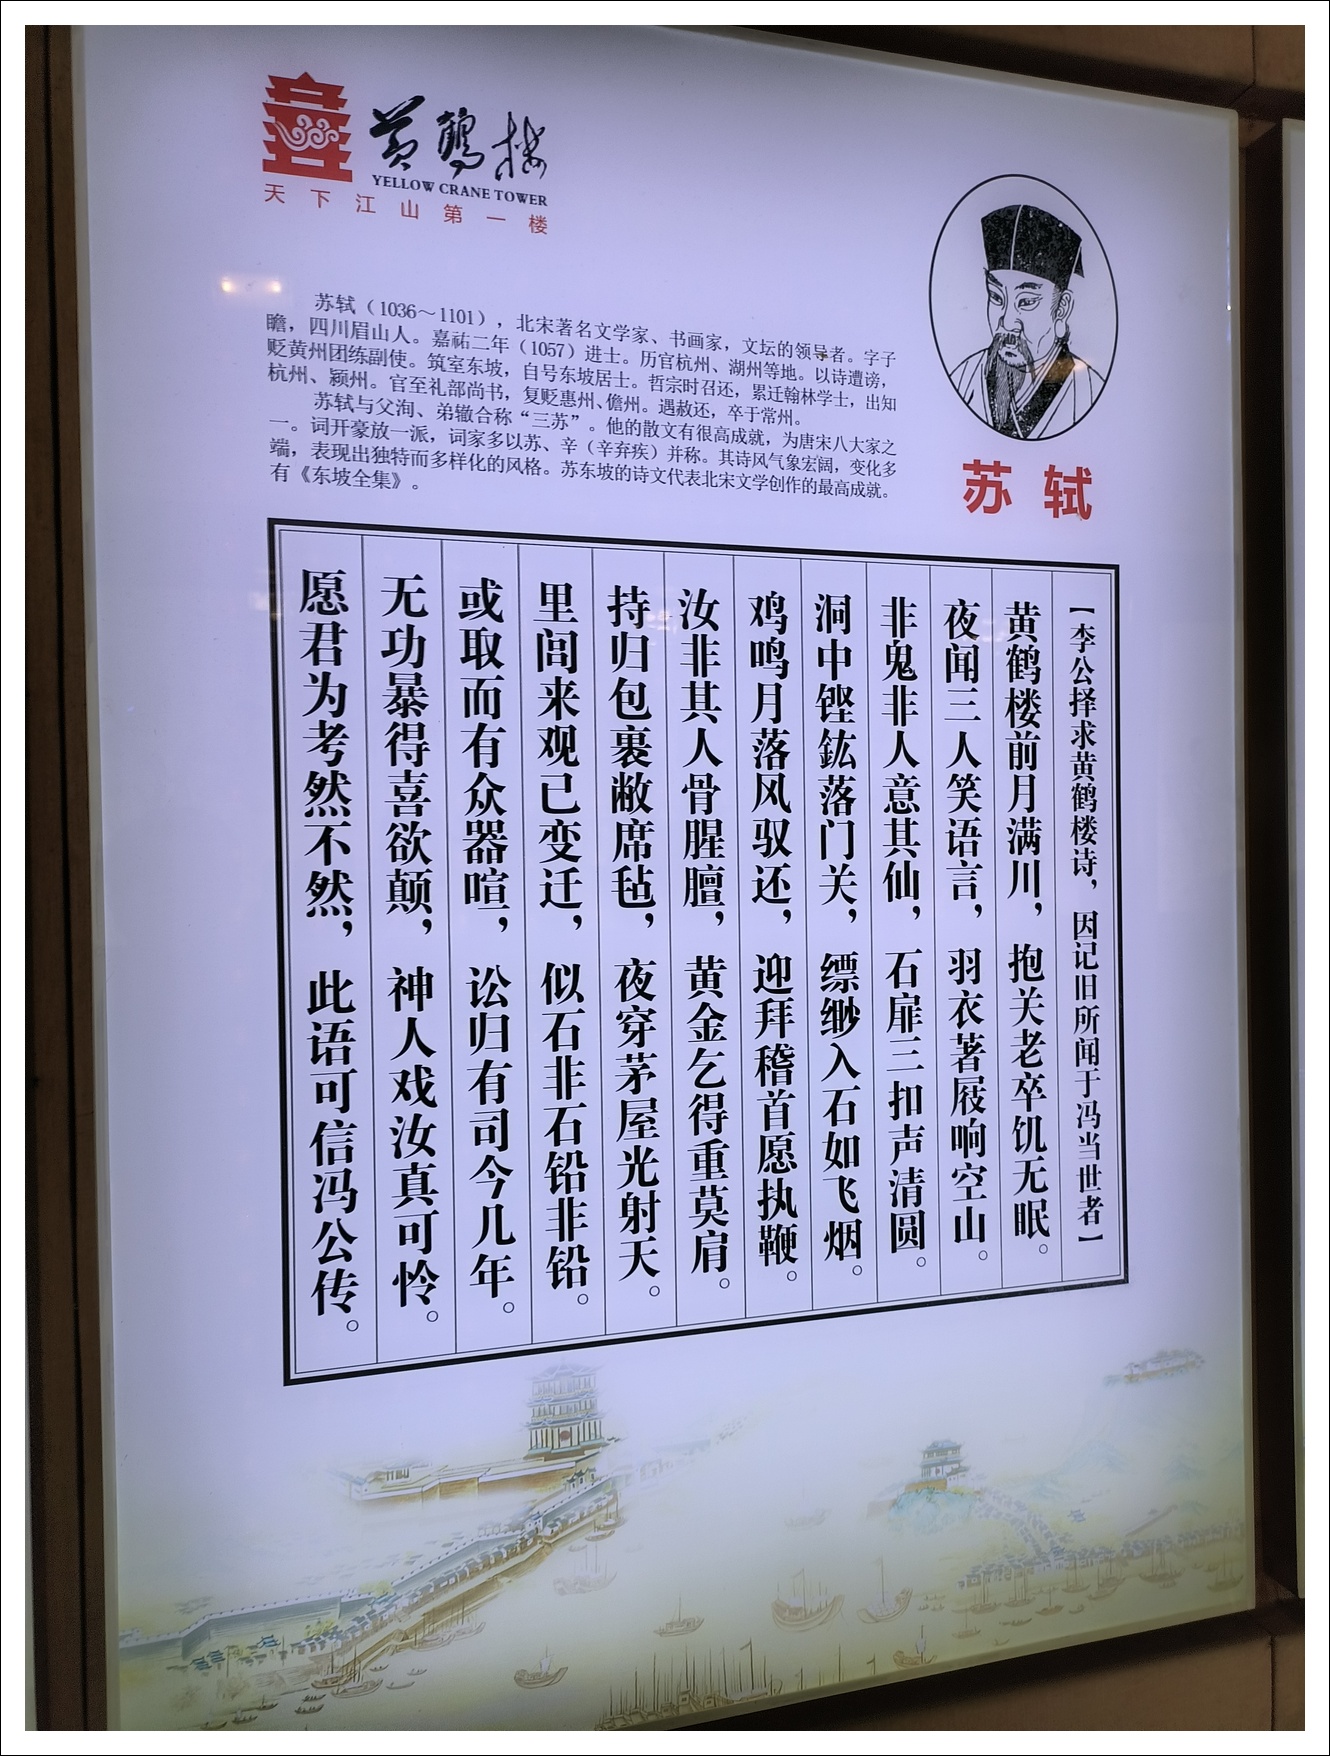 黄鹤楼
YELLOW CRANE TOWER
天下江山第一楼
苏轼（1036～1101），北宋著名文学家、书画家，文坛的领导者。字子
瞻，四川眉山人。嘉祐二年（1057）进士。历官杭州、湖州等地。以诗遭谤，
贬黄州团练副使。筑室东坡，自号东坡居士。哲宗时召还，累迁翰林学士，出知
杭州、颍州。官至礼部尚书，复贬惠州、儋州。遇赦还，卒于常州。
苏轼与父洵、弟辙合称“三苏”。他的散文有很高成就，为唐宋八大家之
一。词开豪放一派，词家多以苏、辛（辛弃疾）并称。其诗风气象宏阔，变化多
端，表现出独特而多样化的风格。苏东坡的诗文代表北宋文学创作的最高成就。
有《东坡全集》。
苏轼
【李公择求黄鹤楼诗，因记旧所闻于冯当世者】
黄鹤楼前月满川，抱关老卒饥无眠。
夜闻三人笑语言，羽衣著屐响空山。
非鬼非人意其仙，石扉三扣声清圆。
洞中铿鈜落门关，缥缈入石如飞烟。
鸡鸣月落风驭还，迎拜稽首愿执鞭。
汝非其人骨腥膻，黄金乞得重莫肩。
持归包裹敝席毡，夜穿茅屋光射天。
里闾来观已变迁，似石非石铅非铅。
或取而有众器喧，讼归有司今几年。
无功暴得喜欲颠，神人戏汝真可怜。
愿君为考然不然，此语可信冯公传。